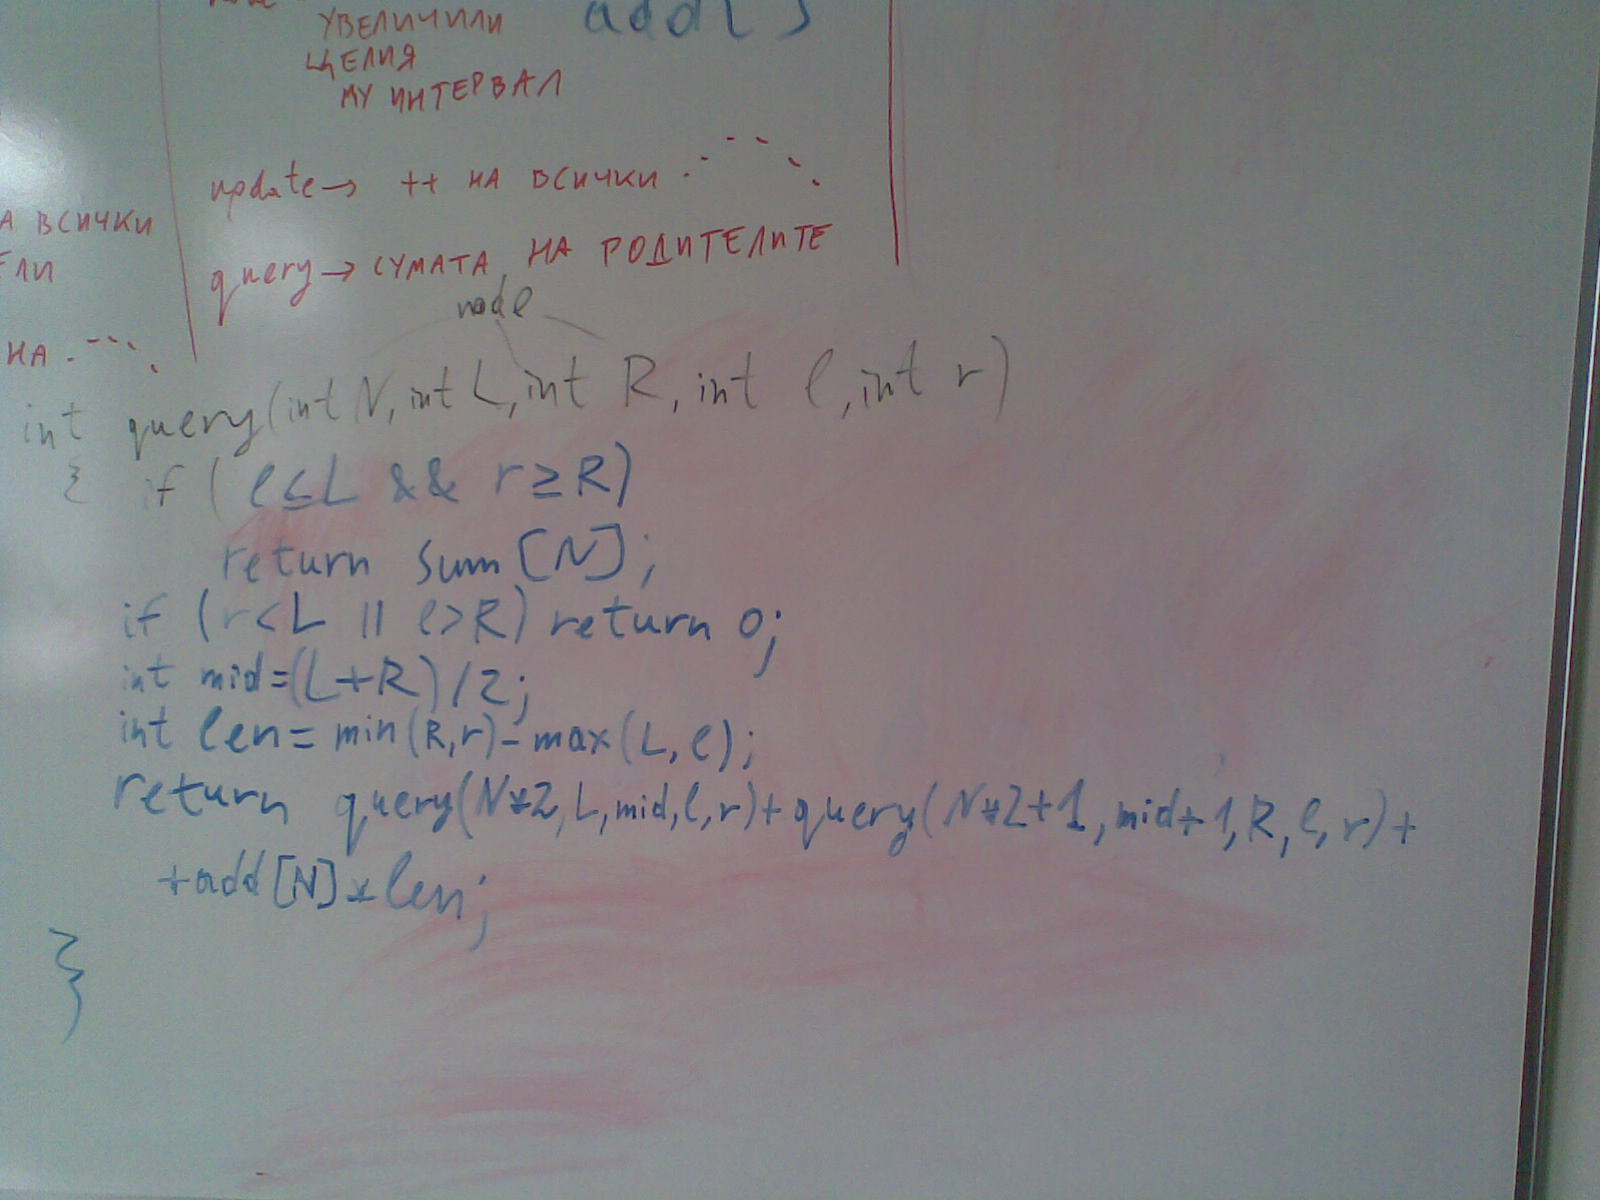 УВЕЛИЧИЛИ
ЦЕЛИЯ
МУ ИНТЕРВАЛ
add[]
update → ++ НА ВСИЧКИ
query → СУМАТА НА РОДИТЕЛИТЕ
А ВСИЧКИ
ЕЛИ
НА
node
int query(int N, int L, int R, int l, int r)
{ if (l≤L && r≥R)
return sum[N];
if (r<L || l>R) return 0;
int mid=(L+R)/2;
int len=min(R,r)-max(L,l);
return query(N*2,L,mid,l,r)+query(N*2+1,mid+1,R,l,r)+
+add[N]*len;
}